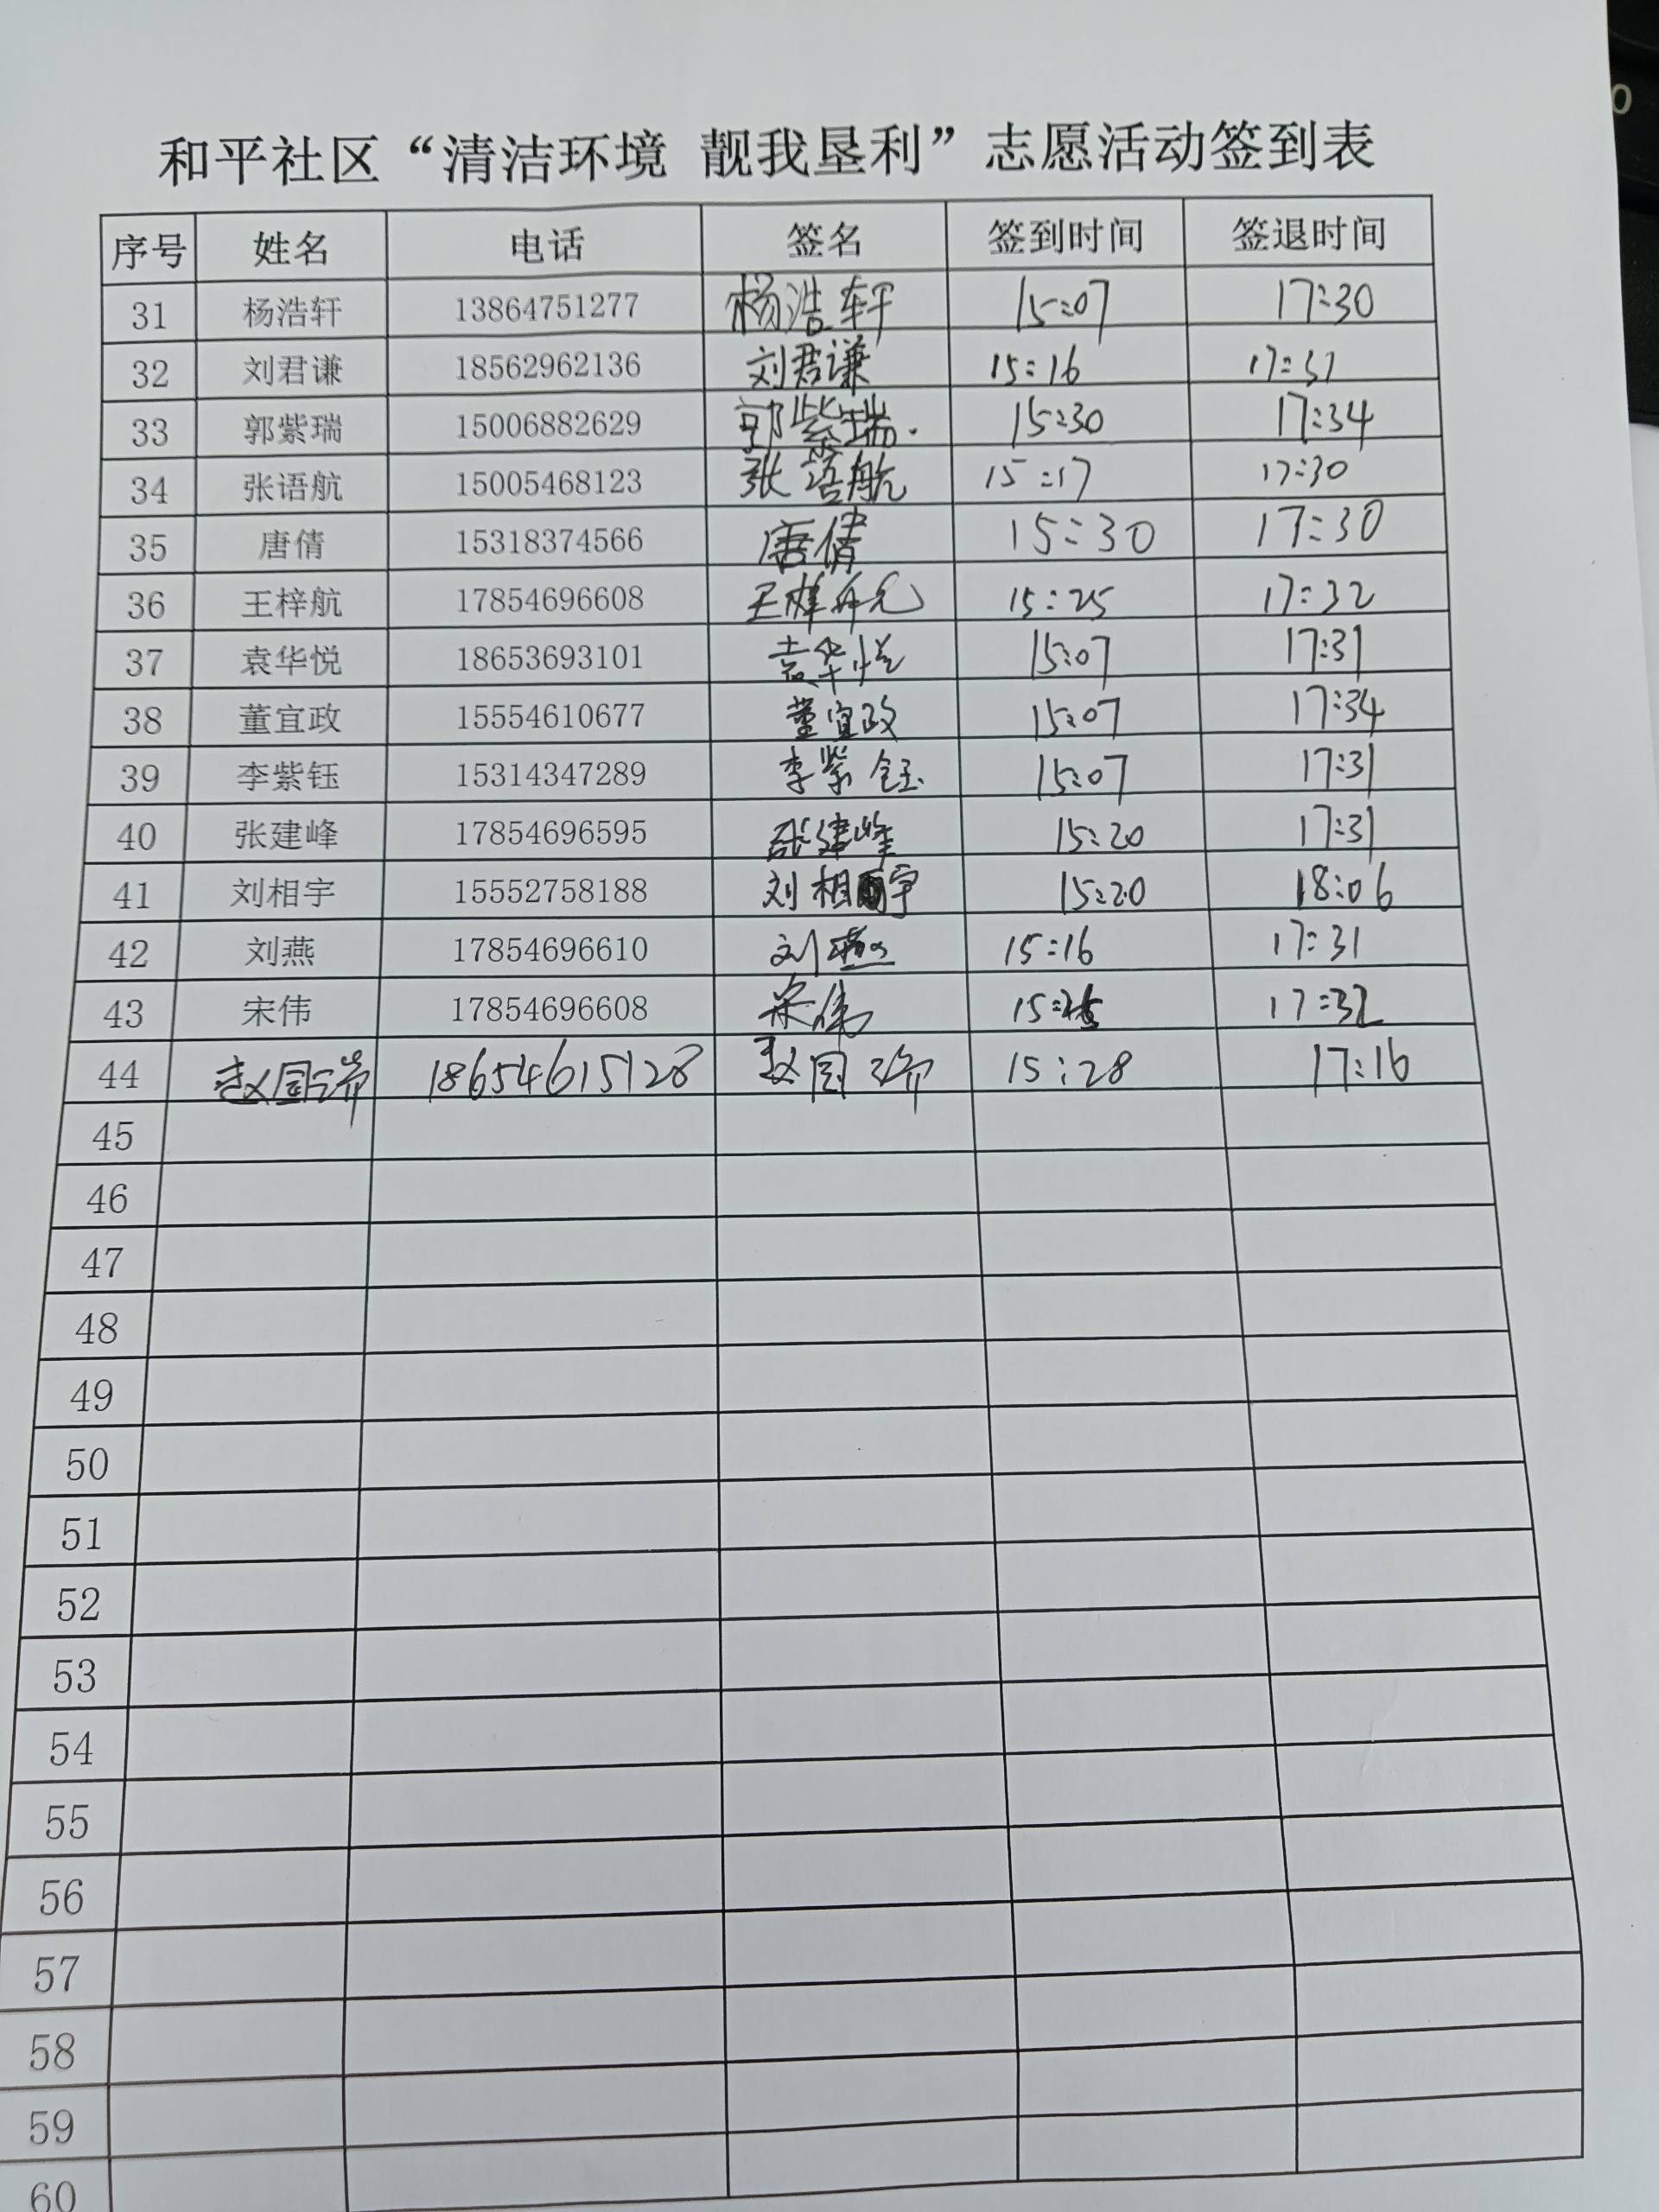 和平社区“清洁环境 靓我垦利”志愿活动签到表
序号 姓名 电话 签名 签到时间 签退时间
31 杨浩轩 13864751277 杨浩轩 15:07 17:30
32 刘君谦 18562962136 刘君谦 15:16 17:31
33 郭紫瑞 15006882629 郭紫瑞. 15:30 17:34
34 张语航 15005468123 张语航 15:17 17:30
35 唐倩 15318374566 唐倩 15:30 17:30
36 王梓航 17854696608 王梓航 15:25 17:32
37 袁华悦 18653693101 袁华悦 15:07 17:31
38 董宜政 15554610677 董宜政 15:07 17:34
39 李紫钰 15314347289 李紫钰 15:07 17:31
40 张建峰 17854696595 张建峰 15:20 17:31
41 刘相宇 15552758188 刘相宇 15:20 18:06
42 刘燕 17854696610 刘燕 15:16 17:31
43 宋伟 17854696608 宋伟 15:25 17:32
44 赵国 18654615128 赵国 15:28 17:16
45
46
47
48
49
50
51
52
53
54
55
56
57
58
59
60